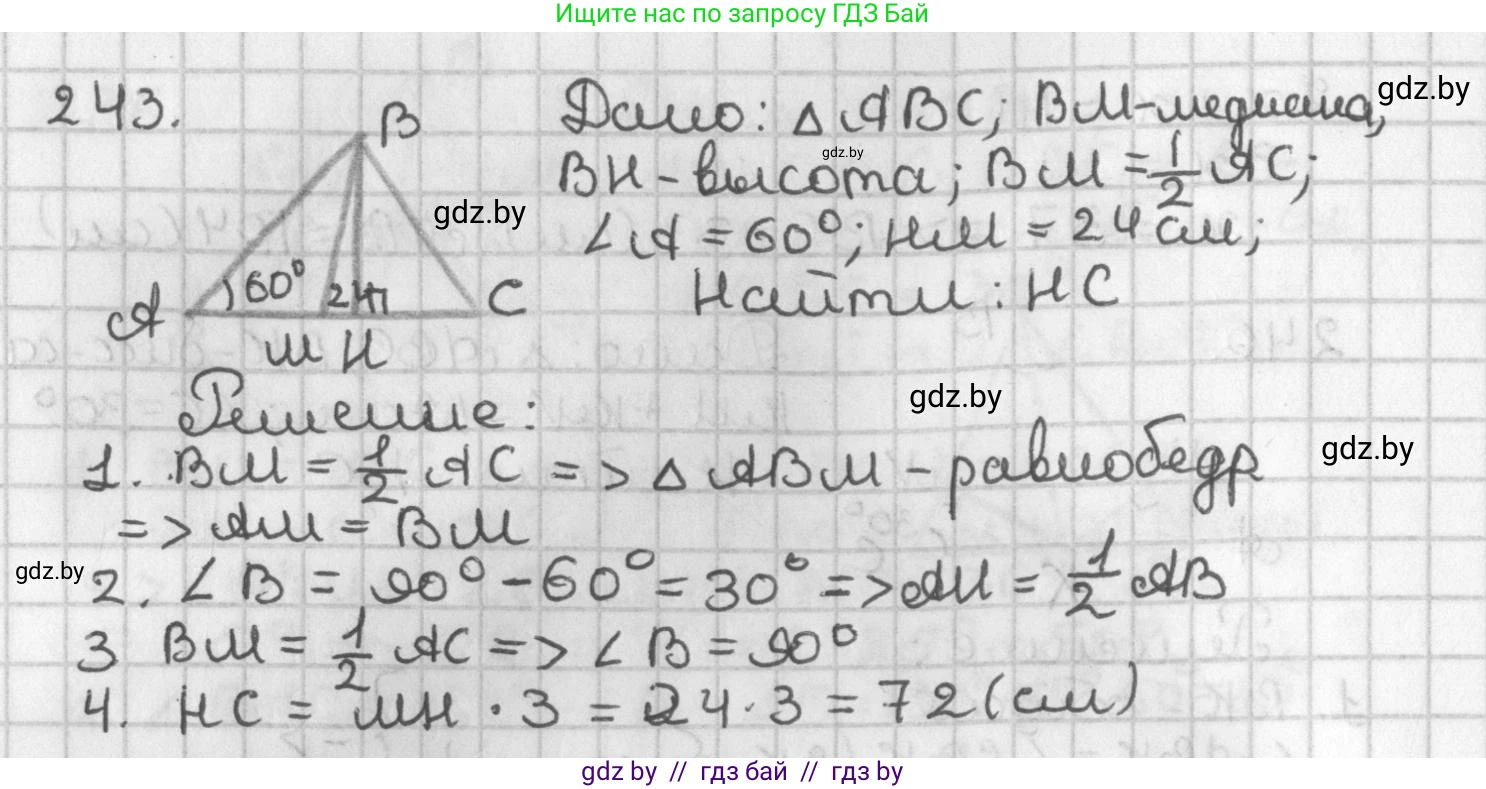 Ищите нас по запросу ГДЗ Бай
243.
B
Дано: △ ABC; BM-медиана,
gdz.by
gdz.by
BH - высота; BM = 1/2 AC;
gdz.by
∠A = 60°; HM = 24 см;
60° 24
A C
Найти: HC
M H
gdz.by
Решение:
1. BM = 1/2 AC => △ ABM - равнобедр
gdz.by
=> AM = BM
gdz.by
2. ∠B = 90° - 60° = 30° => AH = 1/2 AB
3 BM = 1/2 AC => ∠B = 90°
4. HC = MH · 3 = 24 · 3 = 72 (см)
gdz by // гдз бай // гдз by